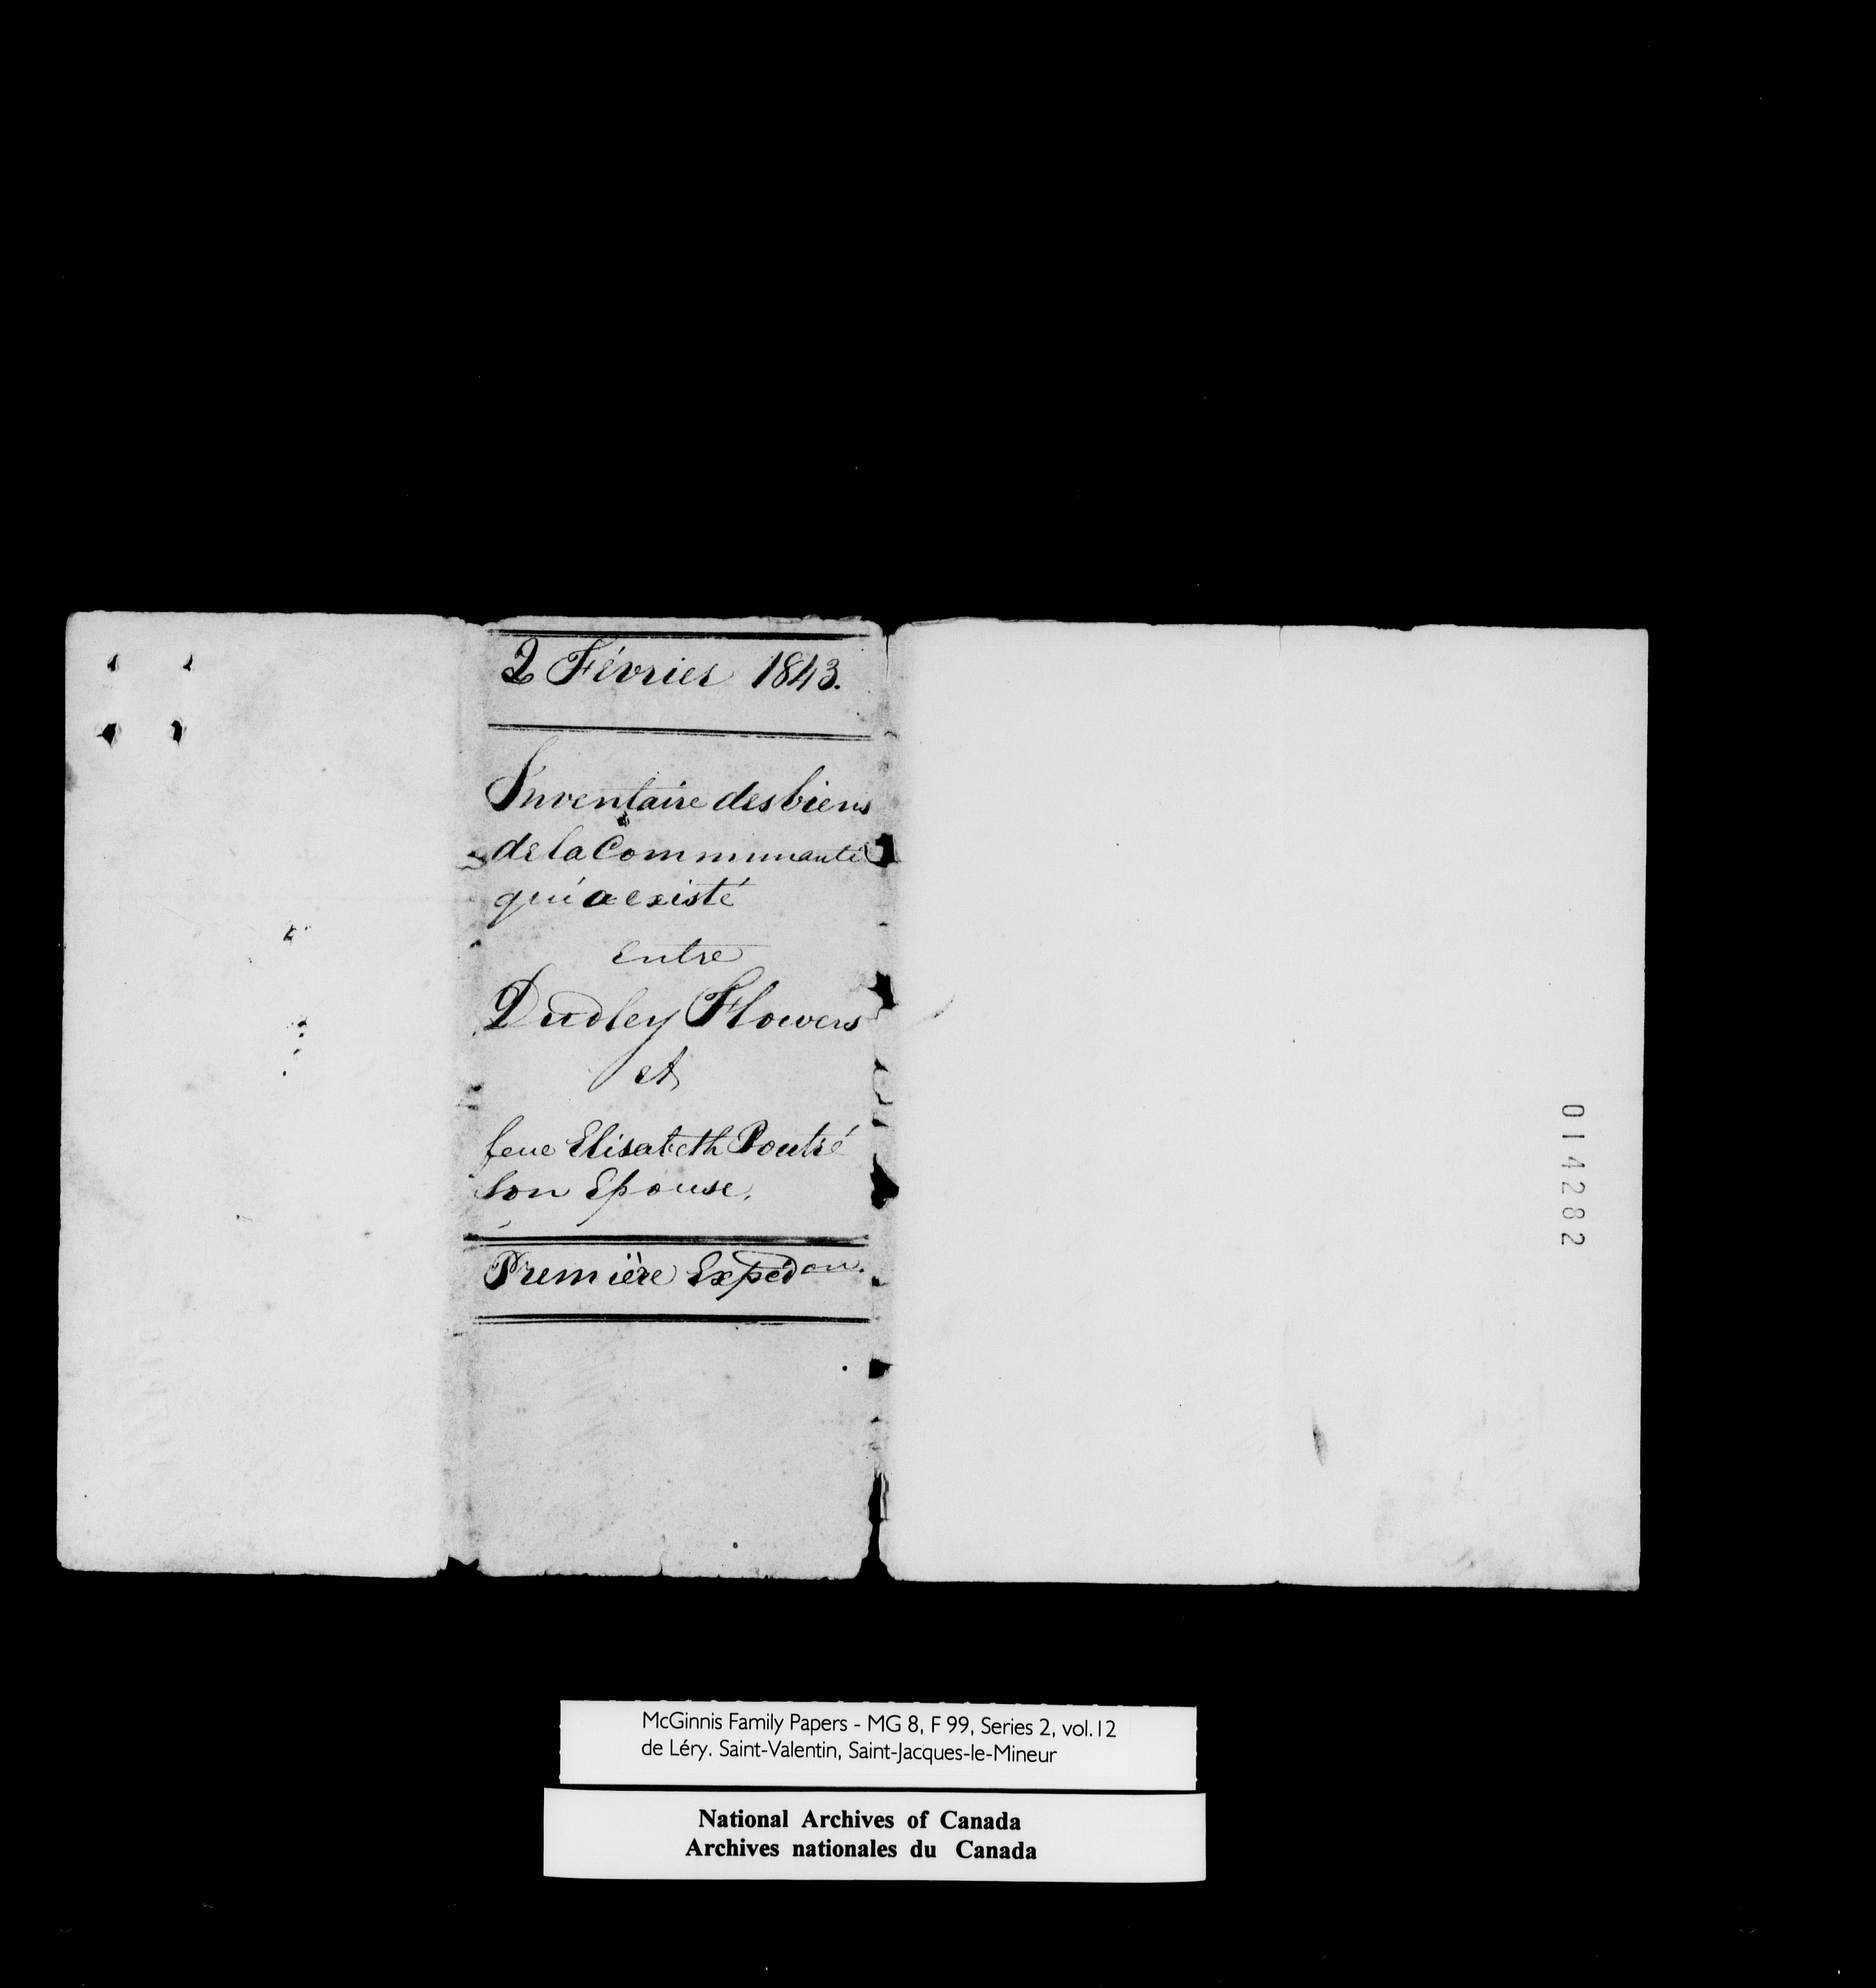 2 Février 1843.
Inventaire des biens
de la Communauté
qui a existé
entre
Dudley Flowers
et
feue Elisabeth Poutré
son Epouse.
Première Expedon.
0142282
McGinnis Family Papers - MG 8, F 99, Series 2, vol.12
de Léry. Saint-Valentin, Saint-Jacques-le-Mineur
National Archives of Canada
Archives nationales du Canada